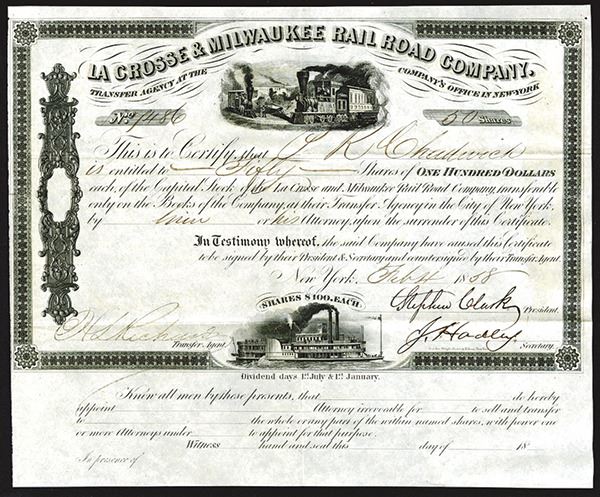 LA CROSSE & MILWAUKEE RAIL ROAD COMPANY.
TRANSFER AGENCY AT THE COMPANY'S OFFICE IN NEW-YORK
No. 7486 50 Shares
This is to Certify, that R. Chadwick
is entitled to Fifty Shares of ONE HUNDRED DOLLARS
each, of the Capital Stock of the La Crosse and Milwaukee Rail Road Company, transferable
only on the Books of the Company, at their Transfer Agency in the City of New York,
by him or his Attorney, upon the surrender of this Certificate.
In Testimony whereof, the said Company have caused this Certificate
to be signed by their President & Secretary and countersigned by their Transfer Agent.
New York, Feb 4 1858
SHARES $100. EACH.
Stephen Clark President.
Transfer Agent. J. Hadley Secretary.
Dividend days 1st July & 1st January.
Know all men by these presents, that do hereby
appoint Attorney irrevocable for to sell and transfer
to the whole or any part of the within named shares, with power one
or more Attorneys under to appoint for that purpose.
Witness hand and seal this day of 18
In presence of